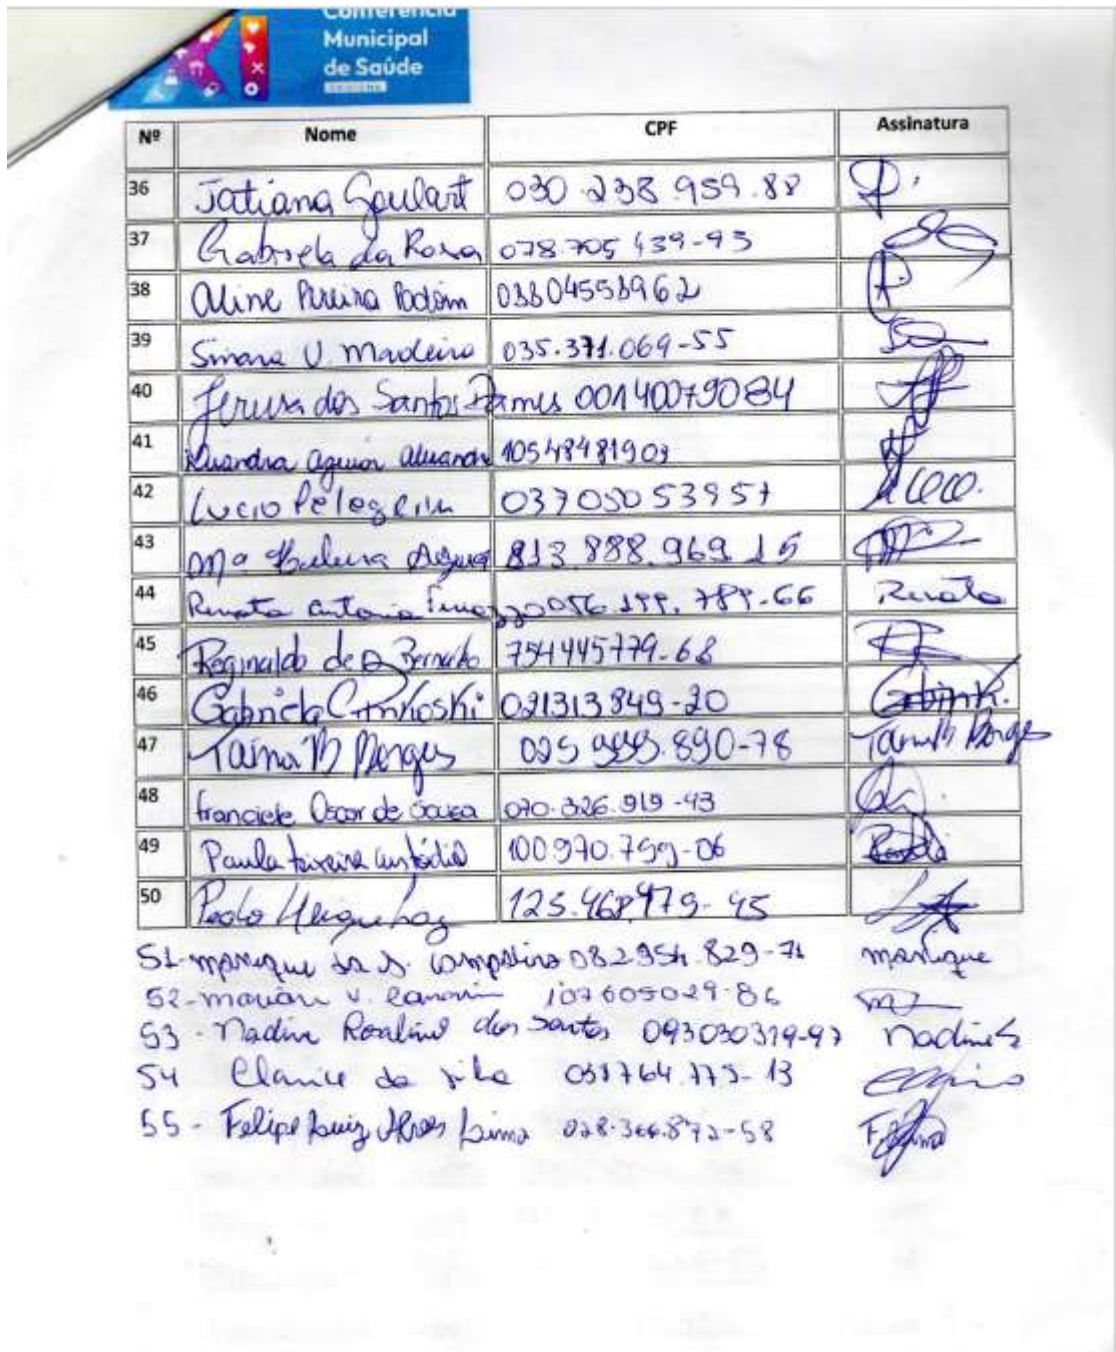 Conferência
Municipal
de Saúde
Nº Nome CPF Assinatura
36 Tatiana Goulart 030.238.959.88
37 Gabriela da Rosa 078.705 439-93
38 Aline Pereira 03804553962
39 Simara V. Madeira 035.371.069-55
40 Jerusa dos Santos Ramus 00140079084
41 Aguiar 10548481903
42 Lucio Pelegrim 03705053957
43 Mª Helena 813.888.969 15
44 Renata Antonia Renata
45 Reginaldo de Bernardo 754445779-68
46 Gabriela 021313849-20
47 Tainá M Borges 025 999.890-78 Tainá M Borges
48 Franciele Oscar de Souza 070.326.919-43
49 Paula Teixeira Custódio 100970.799-06
50 Pedro 125.468.479-45
51- Monique da S. 082954.829-71 Monique
52- V. 107605029-86
53 - Nadine Rosalino dos Santos 093030319-97 Nadine
54 Clarice da Silva
55 - Felipe Luiz Alves Lima 028.366.872-58